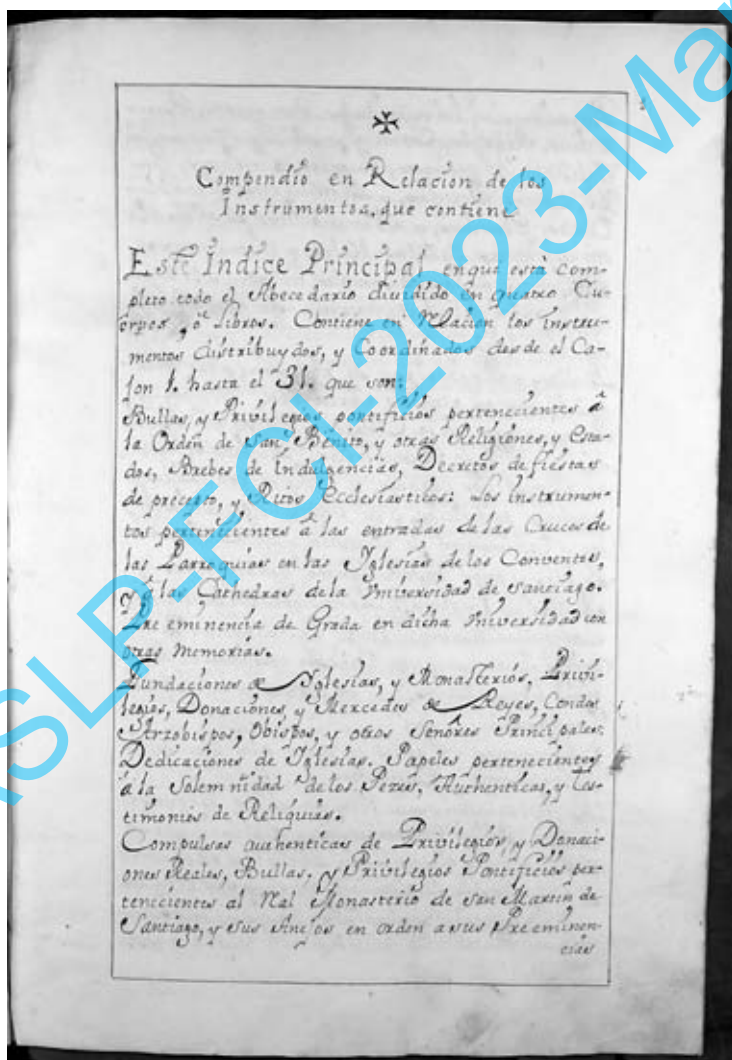 ✠
Compendio en Relacion de los
Instrumentos, que contiene
Este Indice Principal enque está com-
pleto todo el Abecedario diuidido en quatro Cu-
erpos, ò Libros. Contiene en Relacion los instru-
mentos distribuydos, y Coordinados desde el Ca-
jon 1. hasta el 31. que son:
Bullas, y Privilegios pontificios pertenecientes â
la Orden de San Benito, y otras Religiones, y Esta-
dos, Brebes de Indulgencias, Decretos de fiestas
de precepto, y Ritos Ecclesiasticos: Los instrumen-
tos pertenecientes â las entradas de las Cruces de
las Parroquias en las Yglesias de los Conventos,
y â las Cathedras de la Vniversidad de Santiago.
Pre eminencia de Grada en dicha Vniversidad con
otras memorias.
Fundaciones de Yglesias, y Monasterios, Privi-
legios, Donaciones y Mercedes de Reyes, Condes
Arzobispos, Obispos, y otros Señores Principales.
Dedicaciones de Yglesias. Papeles pertenecientes
â la Solemnidad de los Authenticas, y tes-
timonios de Reliquias.
Compulsas authenticas de Privilegios, y Donaci-
ones Reales, Bullas, y Privilegios Pontificios per-
tenecientes al Rl Monasterio de San Martin de
Santiago, y sus Anejos en orden asus Preeminen-
cias
SLP-FCI-2023-Ma